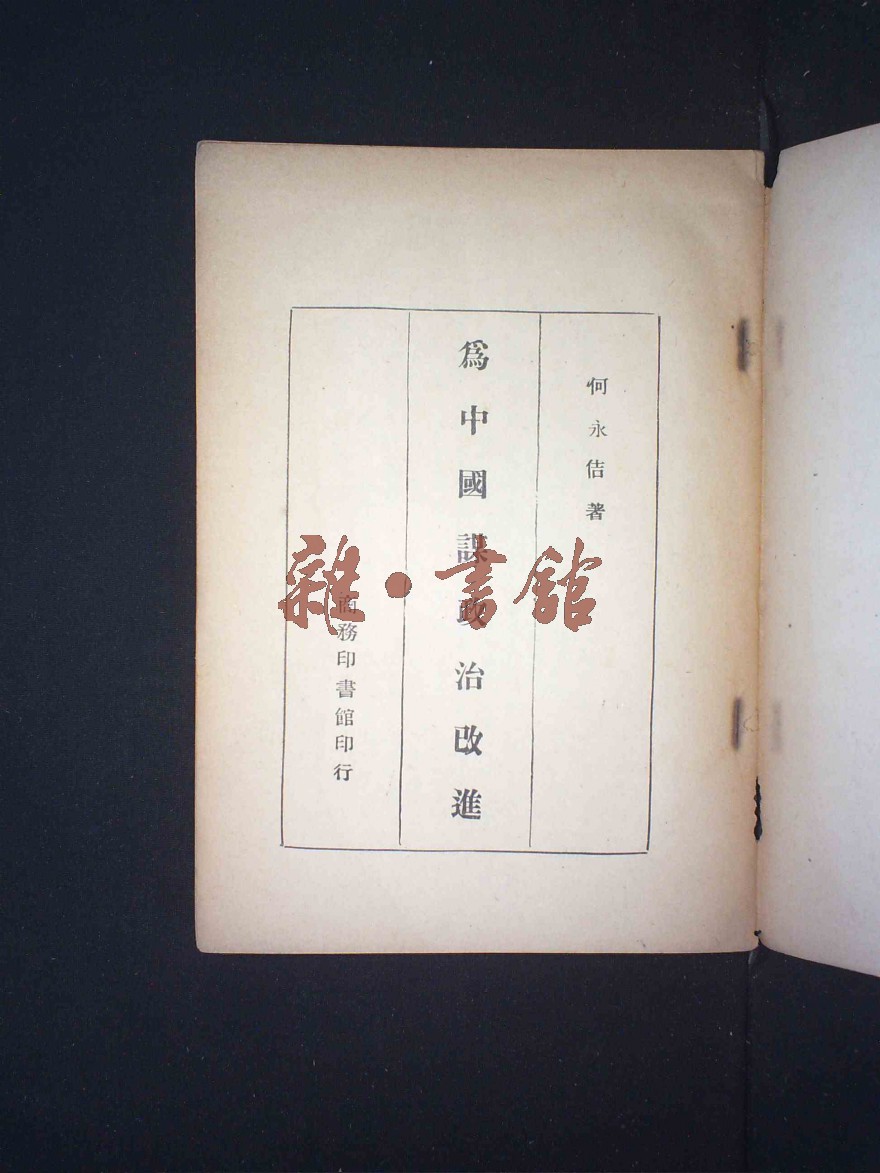 何永佶著
爲中國謀政治改進
商務印書館印行
雜·書館